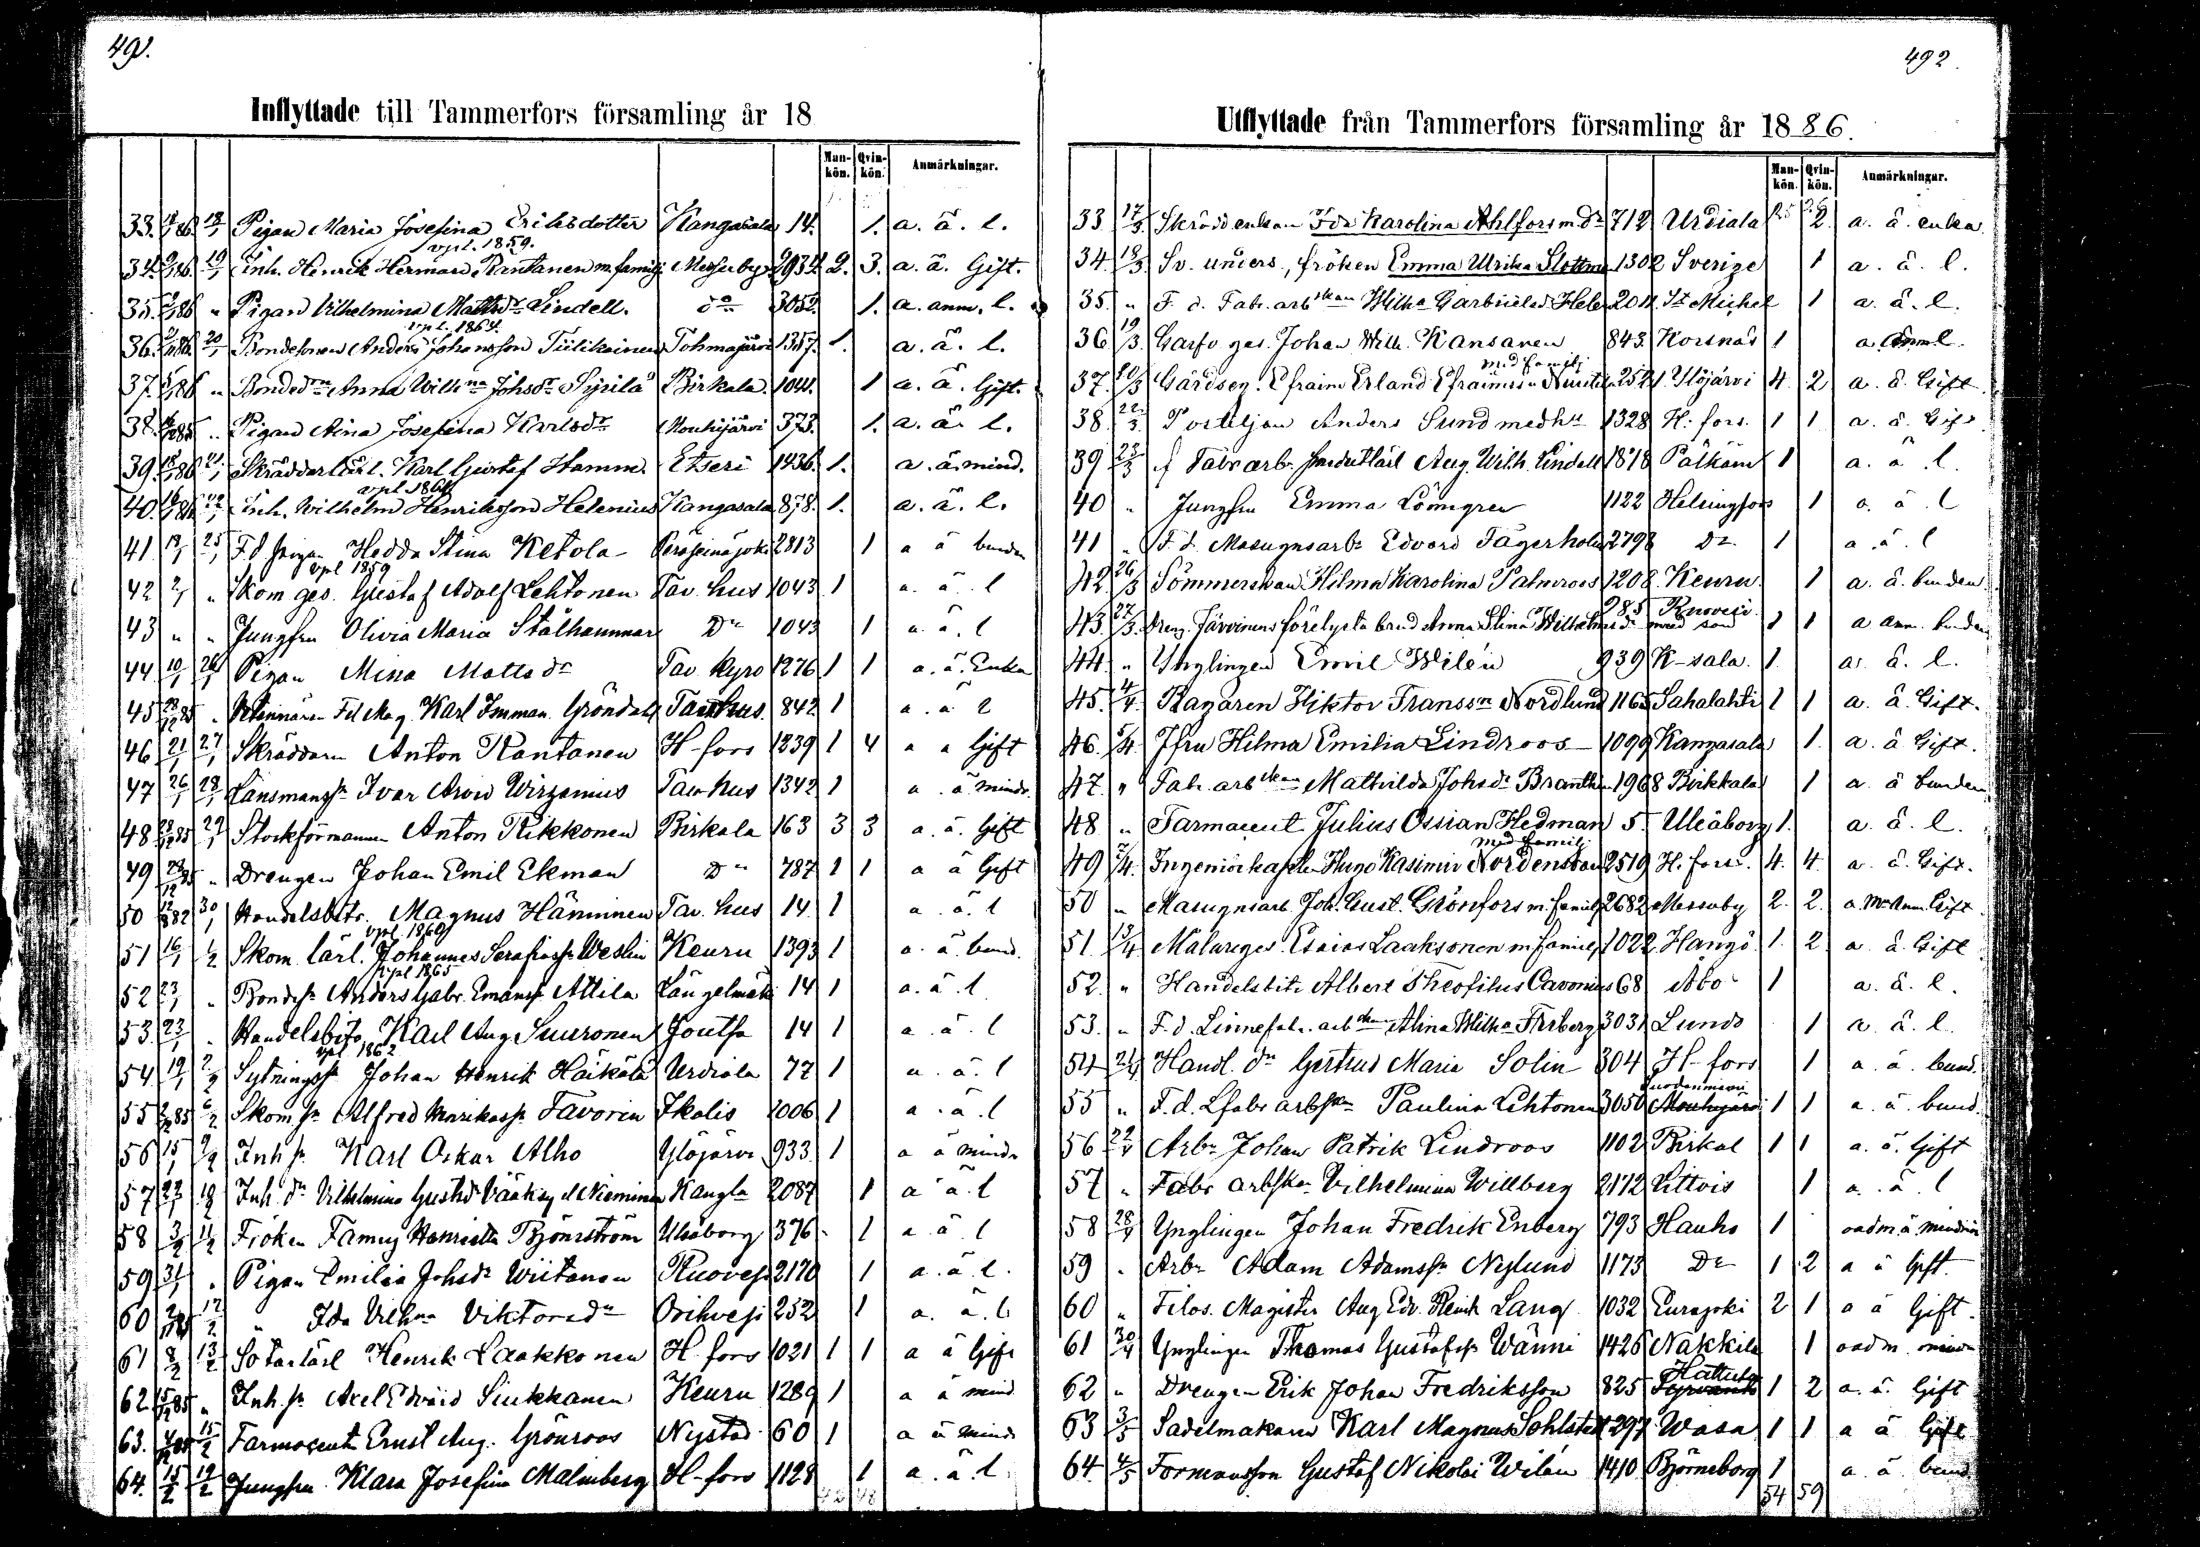 491.
Inflyttade till Tammerfors församling år 18
Mankön. Qvinkön. Anmärkningar.
33. Pigan Maria Josefina Eriksdotter Kangasala 14. 1. a. ä. l.
vpl. 1859.
34. 19/1 Inh. Henrik Herman Rantanen m. familj Messuby 2934 2. 3. a. ä. Gift.
35. " Pigan Vilhelmina Mattsdr Lindell. do 3052. 1. a. anm. l.
vpl. 1864.
36. 20/1 Bondesonen Anders Johansson Tiilikainen Tohmajärvi 1357. 1. a. ä. l.
37. " Bondedrn Anna Wilhna Johsdr Sipilä Birkala. 1044. 1 a. ä. Gift.
38. " Pigan Aina Josefina Karlsdr Mouhijärvi 373. 1. a. ä. l.
39. 21/1 Skräddarlärl. Karl Gustaf Hamme. Etseri 1436. 1. a. ä. mind.
vpl. 1864
40. 22/1 Inh. Wilhelm Henriksson Helenius Kangasala 878. 1. a. ä. l.
41 25/1 F.d. pigan Hedda Stina Ketola Peräseinäjoki 2813 1 a ä bunden
vpl 1859
42 2/1 " Skom. ges. Gustaf Adolf Lehtonen Tav. hus 1043 1 a. ä. l
43 " " Jungfru Olivia Maria Stålhammar Do 1043 1 a. ä. l
44 10/1 26/1 Pigan Mina Mattsdr Tav Kyro 1276 1 1 a. ä. Enka
45 " Fil Mag. Karl Imman. Gröndahl Tavhus. 842 1 a. ä l
46 21/1 27/1 Skräddarn Anton Rantanen H-fors 1339 1 4 a ä Gift
47 26/1 28/1 Länsmanssn Ivar Arvid Wirzenius Tavhus 1342 1 a. ä mindr.
48 29/1 Stockförmannen Anton Rikkonen Birkala 163 3 3 a. ä. Gift
49 " Drengen Johan Emil Ekman Do 787 1 1 a ä Gift
50 30/1 Handelsbitr. Magnus Hänninen Tav. hus 14 1 a. ä. l
vpl. 1860
51 16/1 1/2 Skom. lärl. Johannes Serafiassn Weslin Keuru 1393 1 a. ä bund.
vpl 1865
52 23/1 " Bondesn Anders Gabr. Emanssn Attila Längelmäki 14 1 a. ä. l
53. 23/1 " Handelsbitr. Karl Aug. Suuronen Joutsa 14 1 a. ä. l
vpl 1862
54 19/1 2/2 Sytningssn Johan Henrik Häikälä Urdiala 77 1 a. ä. l
55 6/2 Skom. sn Alfred Henrikssn Favorin Ikalis 1006 1 a. ä. l
56 15/1 9/2 Inh sn Karl Oskar Alho Ylöjärvi 933 1 a ä mindr
57 Inh. dr Vilhelmina Gustdr Vääksy el Nieminen Kangla 2087 1 a ä. l
58 3/2 11/2 Fröken Fanny Henrietta Björnström Uleåborg 376 1 a ä l
59 31/1 " Pigan Emilia Johsdr Wiitanen Ruovesi 2170 1 a. ä. l.
60 12/2 " Ida Vilhna Viktorsdr Orihvesi 252 1 a. ä. l
61 8/2 13/2 Sotarlärl Henrik Laakkonen H. fors 1021 1 1 a ä Gift
62 " Inh. sn Axel Edvard Siukkanen Keuru 1289 1 a ä mind
63. 15/2 Farmaceuten Ernst Aug. Grönroos Nystad 60 1 a ä mind
64. 15/2 19/2 Jungfru Klara Josefina Malmberg H-fors 1128 1 a. ä. l
492.
Utflyttade från Tammerfors församling år 1886.
Mankön. Qvinkön. Anmärkningar.
33 17/3 Skrädd. enkan Ida Karolina Ahlfors m. dr 712 Urdiala 2 a. ä. enka
34. 18/3 Sv. unders., fröken Emma Ulrika 1302 Sverige 1 a. ä. l.
35. " F. d. Fab. arbskan Wilha 2011. St Michel 1 a. ä. l.
36 19/3 Garfv. ges. Johan Wilh. Kansanen 843. Korsnäs 1 a. anm l.
med familj
37. 20/3 Gårdseg. Efraim Erland Efraimsson 2521. Ylöjärvi 4. 2 a. ä. Gift
38 22/3 Postiljon Anders Sund med hu 1328 H. fors. 1 1 a. ä. Gift
39 23/3 f Fabr arb. Aug. Wilh. Lindell 1878 Pälkäne 1 a. ä. l.
40 " Jungfru Emma Lönngren 1122 Helsingfors 1 a. ä. l
41 " F. d. Masugnsarbn Edvard Fagerholm 2798 Do 1 a. ä. l
42 26/3 Sömmerskan Hilma Karolina Palmroos 1208. Keuru 1 a. ä. bunden.
43. 27/3. Dreng. Järvinens förelysta brud Anna Stina Wilhelmsdr med son 985 Ruovesi 1 1 a anm. bunden
44. " Ynglingen Emil Wilén 939 K-sala. 1. a. ä. l.
45. 4/4. Bagaren Viktor Franssn Nordlund 1165 Sahalahti 1 1 a. ä. Gift.
46. 5/4. Jfru Hilma Emilia Lindroos 1099 Kangasala 1. a. ä Gift.
47. " Fab. arbskan Mathilda Johsdr 1968 Birkkala 1 a. ä bunden
48 " Farmaceut Julius Ossian Hedman 5. Uleåborg 1. a. ä. l.
med familj
49 7/4. Ingeniörkapten Hugo Kasimir Nordenstam 2519 H. fors. 4. 4. a. ä. Gift.
50 " Masugnsarb. Joh. Gust. Grönfors m. familj 2682 Messuby 2. 2. a. anm. Gift
51. 13/4 Målareges. Esaias Laaksonen m familj 1022 Hangö. 1. 2 a ä. Gift
52. " Handelsbitr Albert Theofilus Cavonius 68 Åbo 1 a. ä. l.
53. " F. d. Linnefabr. arbskan Alina Wilha Friberg 3031 Lundo 1 a. ä. l.
54 21/4 Handl. dr Gertrud Maria Solin 304 H-fors 1 a. ä. bund.
Suodenniemi
55 " F. d. Lfabr arbskn Paulina Lehtonen 3050 Mouhijärvi 1 1 a. ä. bund.
56 22/4 Arbn Johan Patrik Lindroos 1102 Birkal 1 1 a. ä. Gift
57 " Fabr arbskn Vilhelmina Willberg 2172 Littois 1 a. ä. l
58 28/4 Ynglingen Johan Fredrik Enberg 793 Hauho 1 oadm ä.
59 " Arbn Adam Adamssn Nylund 1173 Do 1 2 a ä Gift.
60 " Filos. Magister Aug Edv. Reinh Lang 1032 Eurajoki 2 1 a ä Gift.
61 30/4 Ynglingen Thomas Gustafssn Wänni 1426 Nakkila 1 oadm.
Hattula
62 " Drengen Erik Johan Fredriksson 825 Tyrväntö 1 2 a. ä. Gift
63 3/5 Sadelmakarn Karl Magnus Sohlstedt 297 Wasa 1 1 a ä Gift
64 4/5 Formanssn Gustaf Nikolai Wilén 1410 Björneborg 1 a. ä. bund
54 59